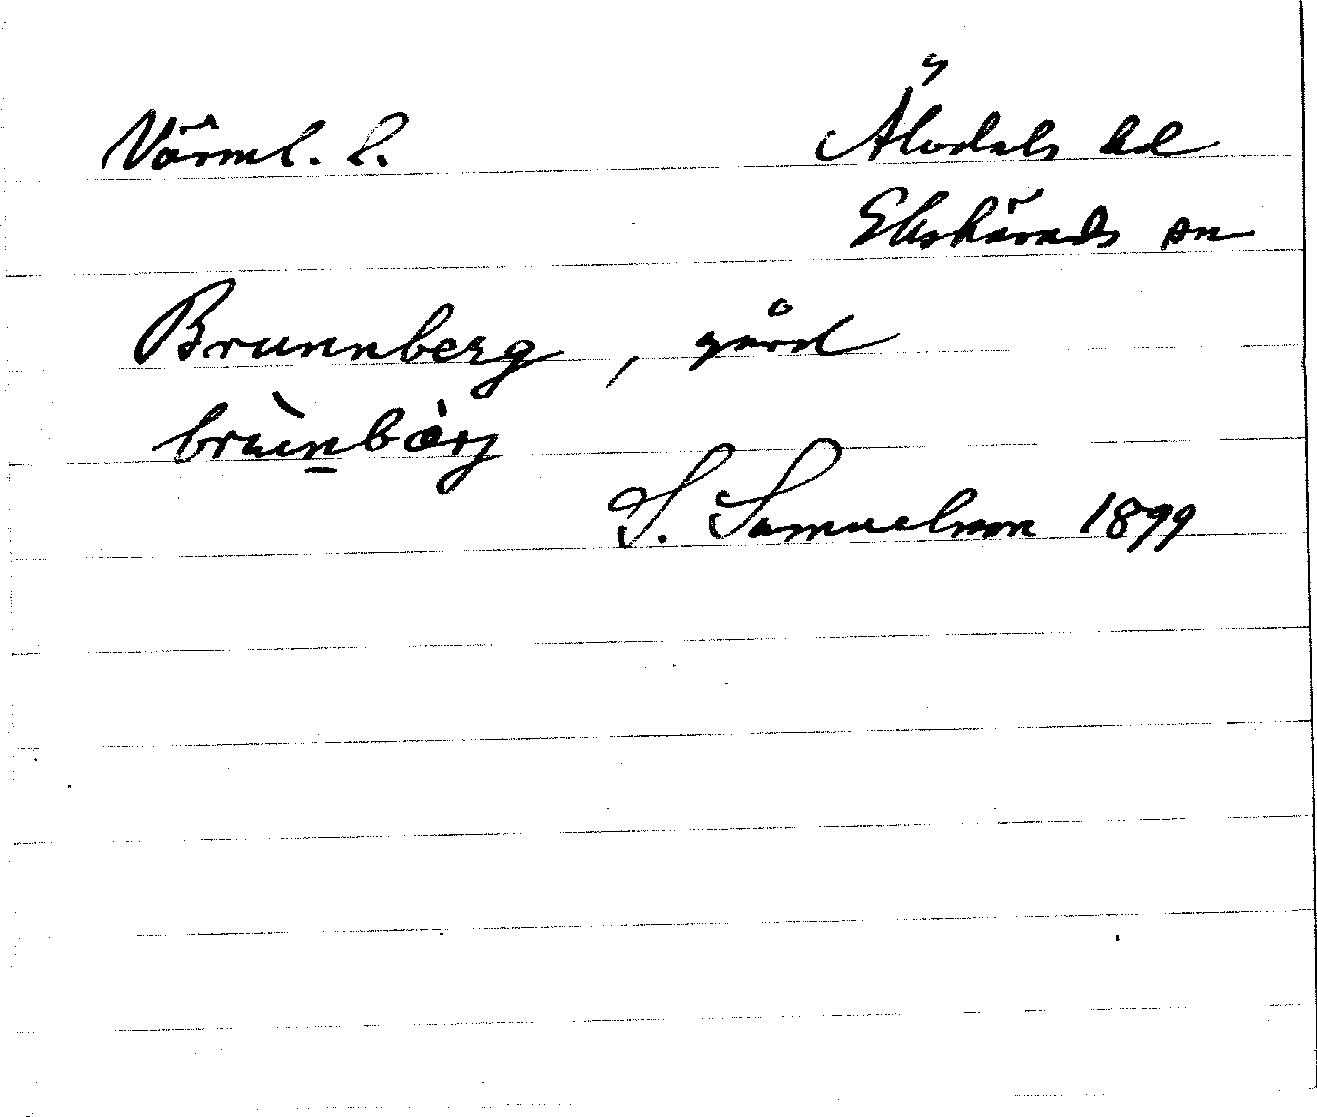 Värml. l. Älvdals hd
Ekshärads sn
Brunnberg, gård
brùn̲bærj
S. Samuelsson 1899